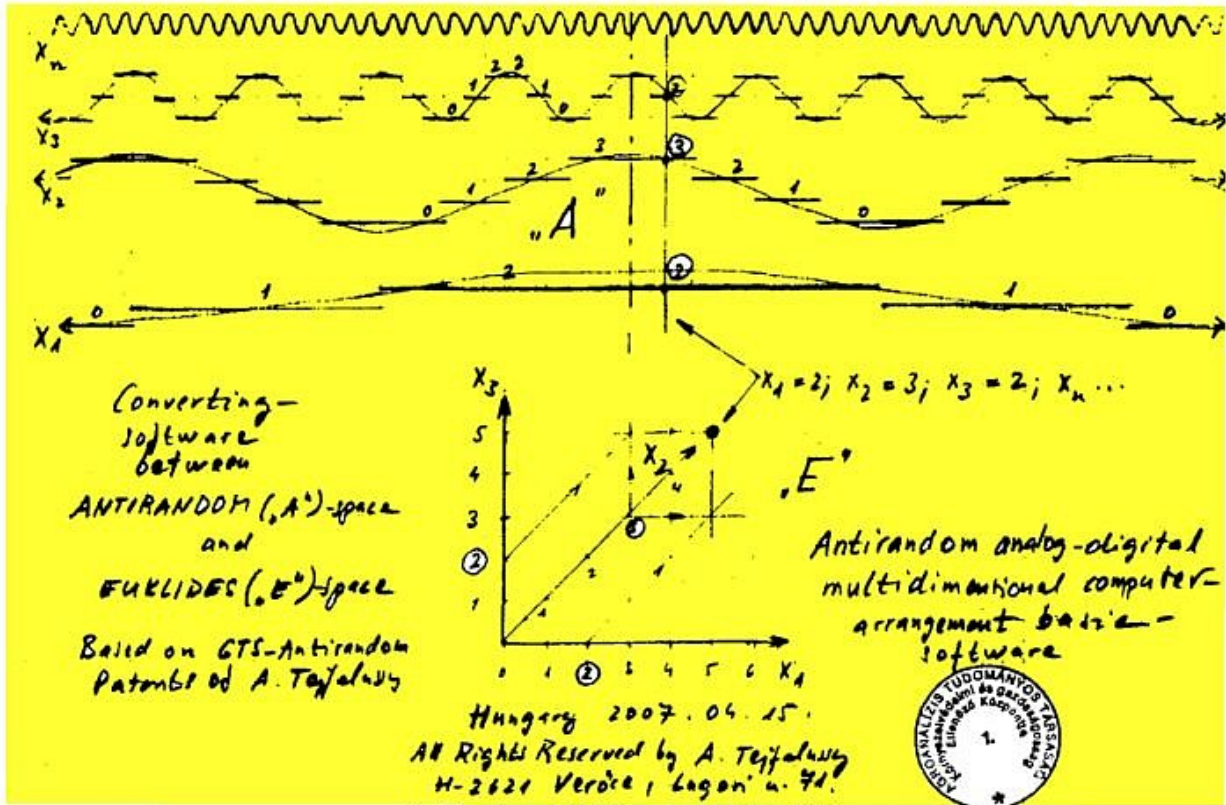 Xn
2 2
1 1 2
0 0
X3
3 3
2 2
X2
1 1
0 0
„A"
2 2
1 1
0 0
X1
X1 = 2; X2 = 3; X3 = 2; Xn ...
Converting-
software
between
ANTIRANDOM („A")-space
and
EUKLIDES („E")-space
Based on GTS-Antirandom
Patents of A. Tejfalussy
X3
5
4
3
2
1
X2
4
3
2
1
1
1
0 1 2 3 4 5 6 X1
„E"
Antirandom analog-digital
multidimentional computer-
arrangement basic-
software
Hungary 2007. 04. 15.
All Rights Reserved by A. Tejfalussy
H-2621 Verőce, Lugosi u. 71.
AGROANALÍZIS TUDOMÁNYOS TÁRSASÁG
Környezetvédelmi és gazdaságossági
Ellenőrző Központja
1.
*